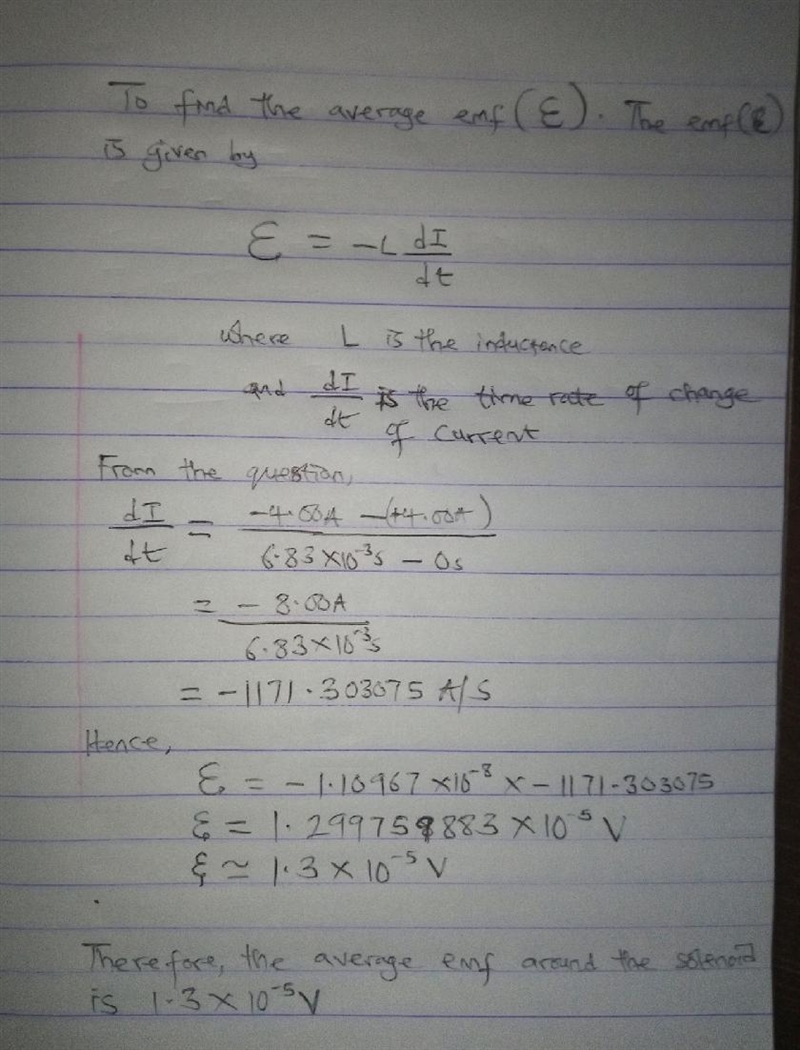 To find the average emf (ε). The emf(ε)
is given by
ε = -L dI/dt
where L is the inductence
and dI/dt is the time rate of change
of current
From the question,
dI/dt = -4.00A -(+4.00A) / 6.83×10⁻³s - 0s
= - 8.00A / 6.83×10⁻³s
= -1171.303075 A/S
Hence,
ε = -1.10967 ×10⁻⁸ × -1171.303075
ε = 1.299759883 ×10⁻⁵ V
ε ≃ 1.3 × 10⁻⁵ V
Therefore, the average emf around the solenoid
is 1.3 × 10⁻⁵ V